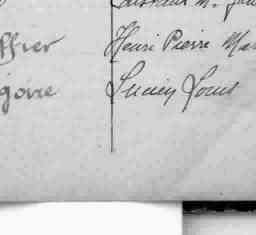 ffrier Henri Pierre Mar
goire Lucien Louis